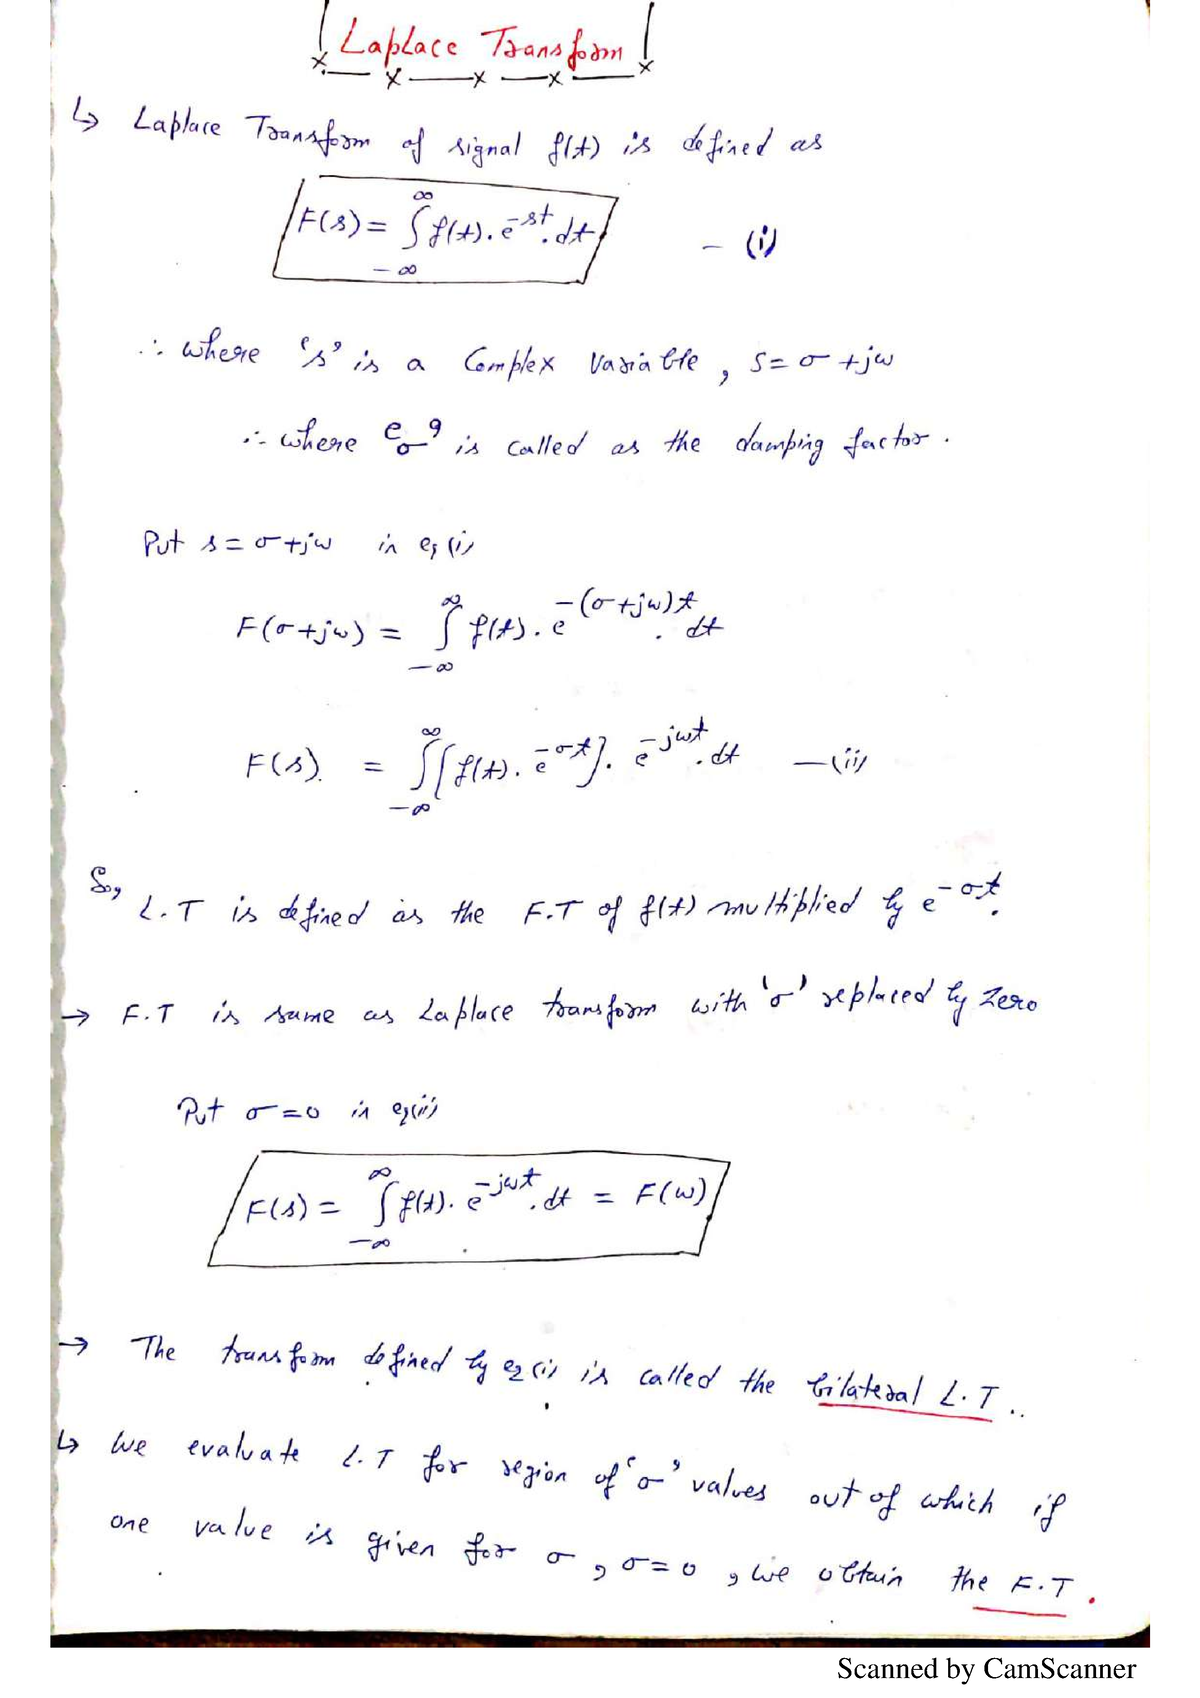 Laplace Transform
↳ Laplace Transform of signal f(t) is defined as
F(s) = ∫_{-∞}^{∞} f(t). e^{-st}. dt — (i)
∴ where 's' is a Complex Variable, s = σ + jω
∴ where 'σ' is called as the damping factor.
Put s = σ + jω in eq (i)
F(σ + jω) = ∫_{-∞}^{∞} f(t). e^{-(σ + jω)t}. dt
F(s) = ∫_{-∞}^{∞} [f(t). e^{-σt}]. e^{-jωt}. dt — (ii)
So, L.T is defined as the F.T of f(t) multiplied by e^{-σt}.
→ F.T is same as Laplace transform with 'σ' replaced by Zero
Put σ = 0 in eq (ii)
F(s) = ∫_{-∞}^{∞} f(t). e^{-jωt}. dt = F(ω)
→ The transform defined by eq (i) is called the bilateral L.T..
↳ We evaluate L.T for region of 'σ' values out of which if
one value is given for σ, σ = 0, we obtain the F.T.
Scanned by CamScanner